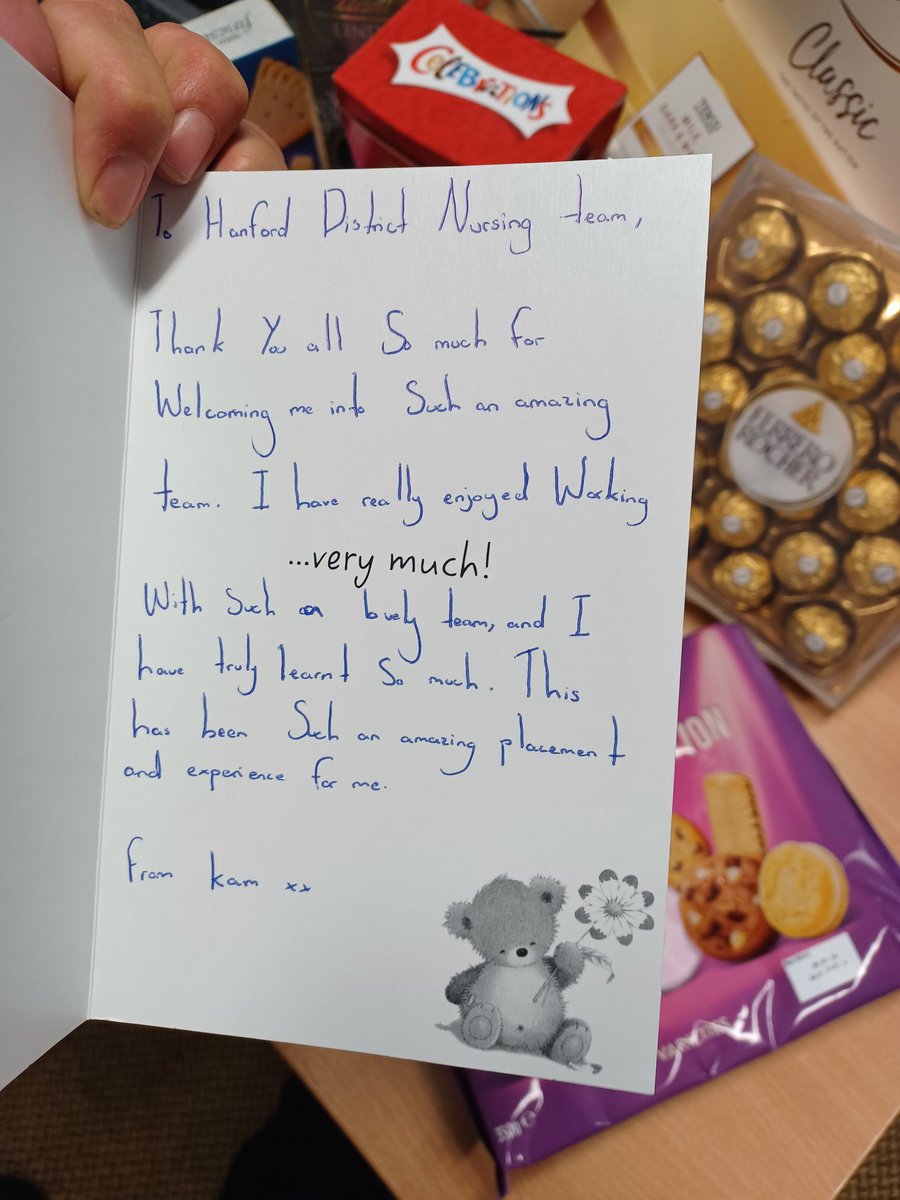 CELEBRATIONS
Classic
To Hanford District Nursing team,
Thank You all So much for
Welcoming me into Such an amazing
team. I have really enjoyed Working
...very much!
With Such a lovely team, and I
have truly learnt So much. This
has been Such an amazing placement
and experience for me.
From kam xx
FERRERO
ROCHER